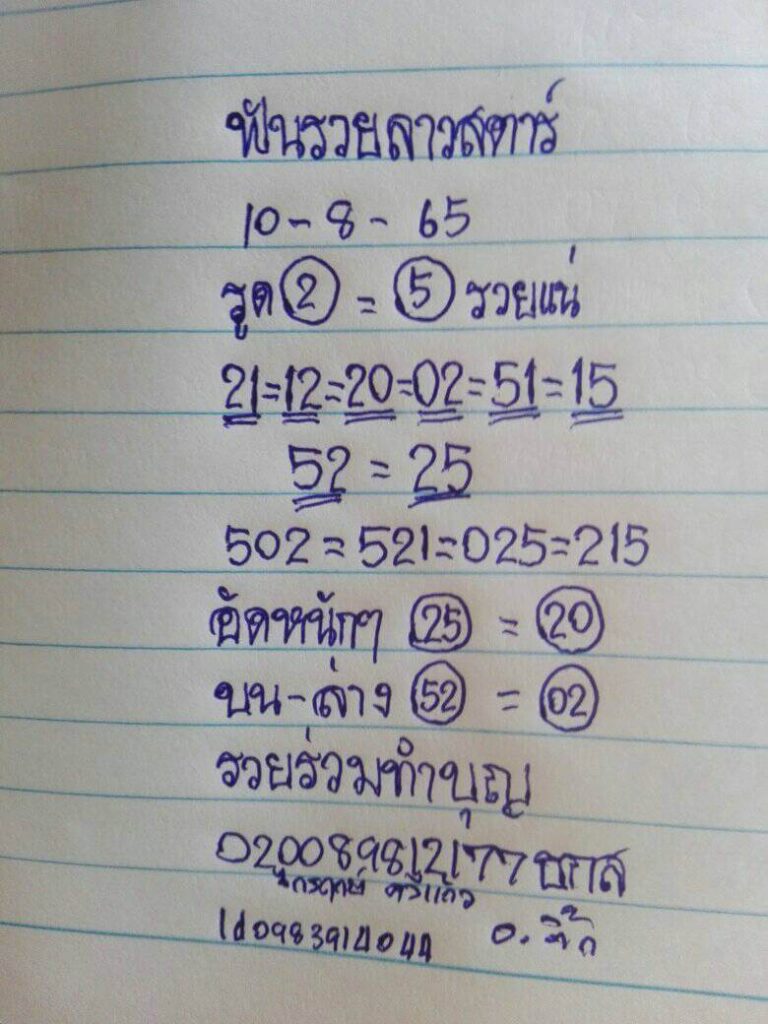 ฟันรวยลาวสตาร์
10-8-65
รูด 2 = 5 รวยแน่
21=12=20=02=51=15
52 = 25
502=521=025=215
อัดหนักๆ 25 = 20
บน-ล่าง 52 = 02
รวยร่วมทำบุญ
020089812177 ธกส
Id0983914044 อ.